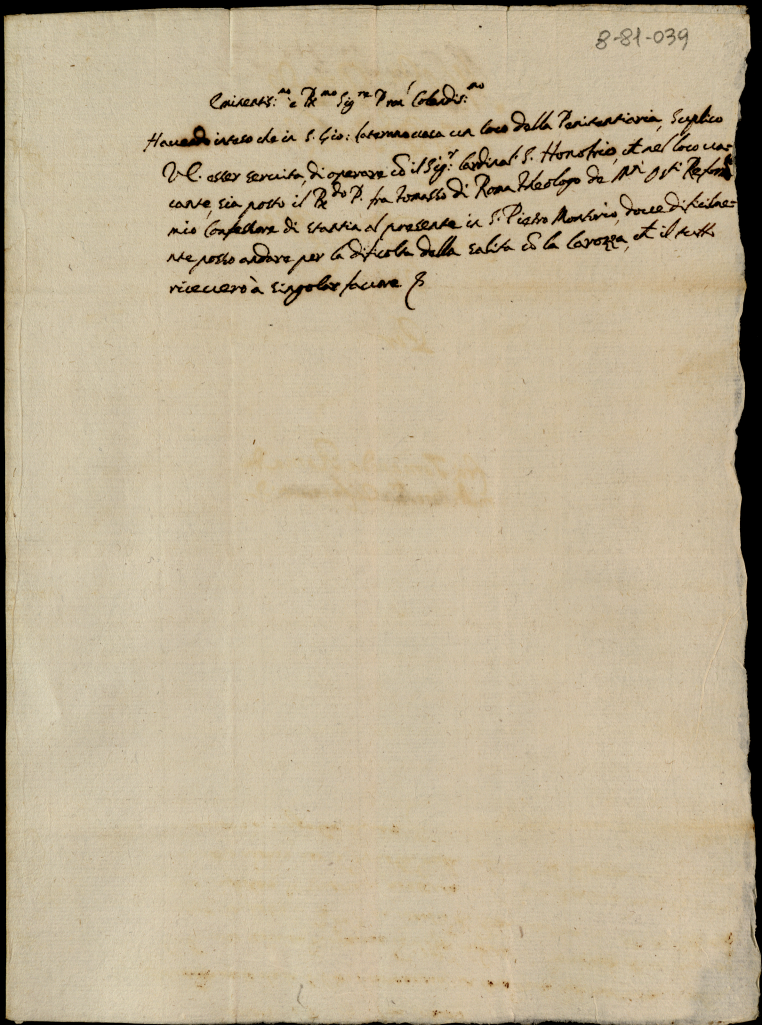 8-81-039
Eminentis:mo e Re:mo Sig:re P ron Colendis:mo
Havendo inteso che in S. Gio: laterano vaca un loco della Penitentiaria, suplico
V.E. esser servita, di operare cõ il Sig:r Cardinal S. Honofrio, et nel loco va=
cante, sia posto il Re:do P. fra Tomasso di Roma theologo de Mri Ost: Reform
mio Confessore di stantia al presente in S. Pietro Montorio, dove dificilme=
nte posso andare per la dificolta della salita cõ la Carozza, et il tutto
ricevero à singolar favore